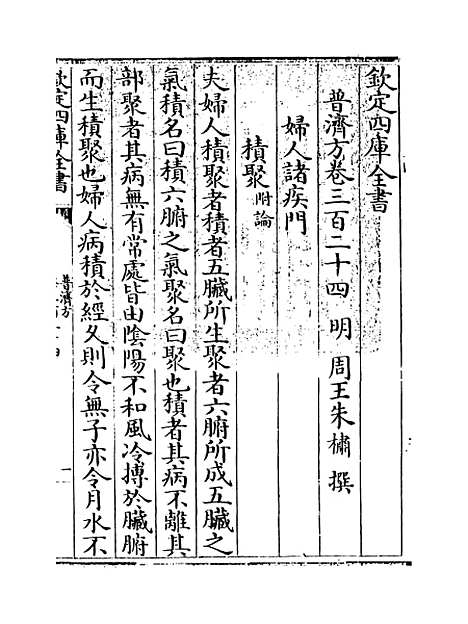 欽定四庫全書
普濟方卷三百二十四　明　周王朱橚　撰
婦人諸疾門
積聚附論
夫婦人積聚者積者五臟所生聚者六腑所成五臟之
氣積名曰積六腑之氣聚名曰聚也積者其病不離其
部聚者其病無有常處皆由陰陽不和風冷搏於臟腑
而生積聚也婦人病積於經久則令無子亦令月水不
欽定四庫全書
普濟方
一